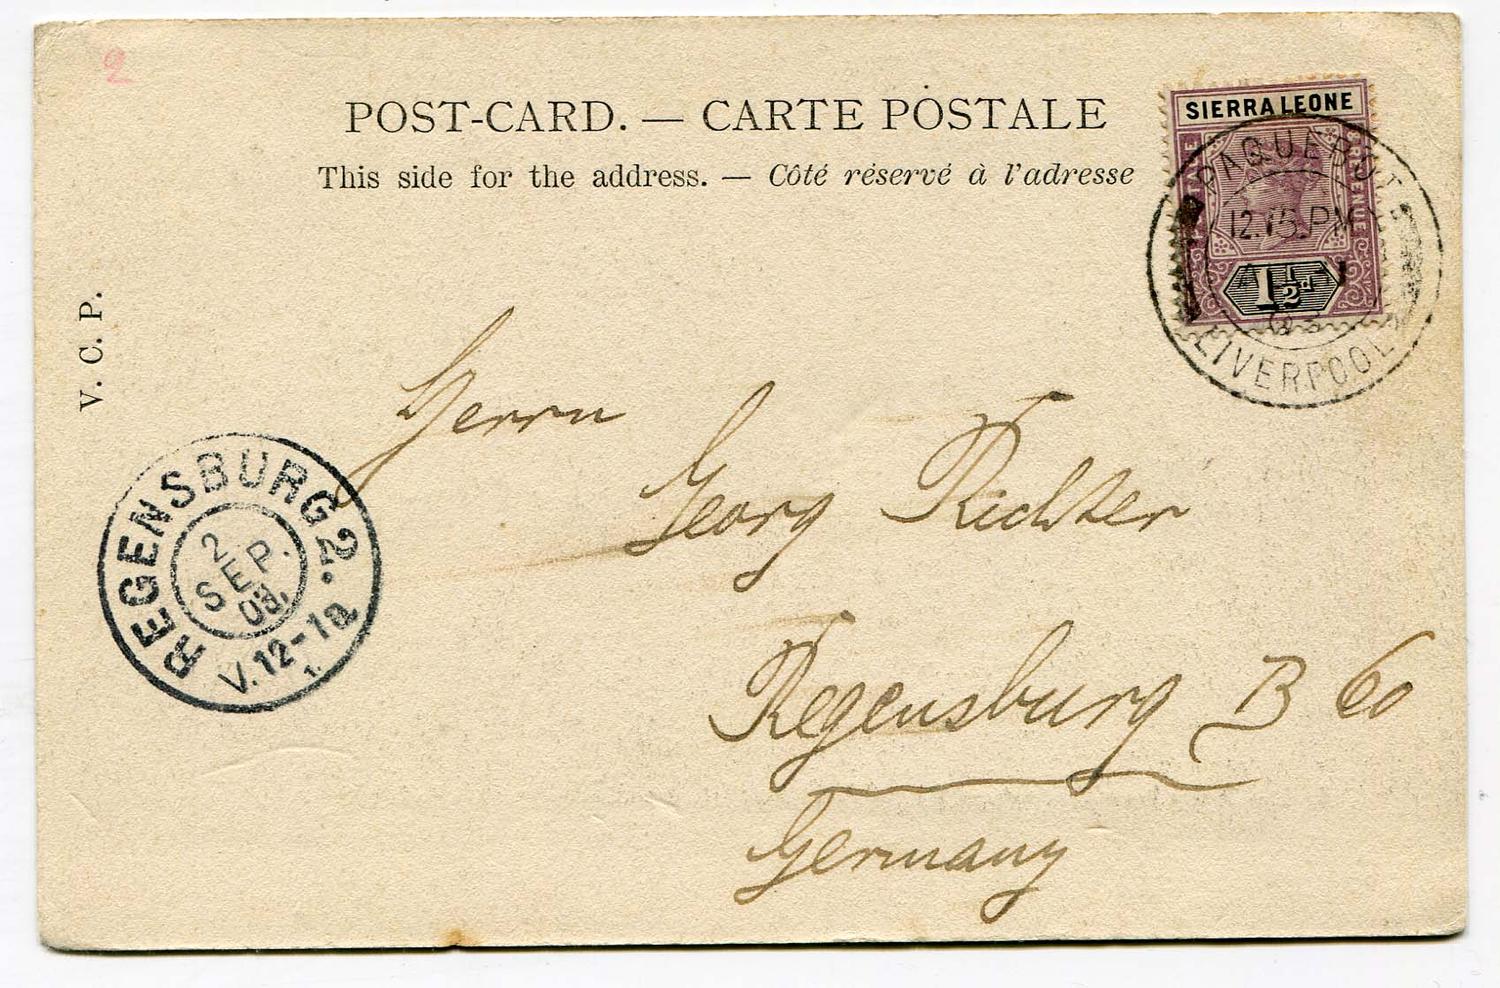 2
POST-CARD. — CARTE POSTALE
This side for the address. — Côté réservé à l'adresse
V. C. P.
SIERRA LEONE
POSTAGE
REVENUE
1½d
PAQUEBOT
12.15.PM
LIVERPOOL
Herrn
Georg Richter
Regensburg B 60
Germany
REGENSBURG 2.
2
SEP.
03.
V.12-1a